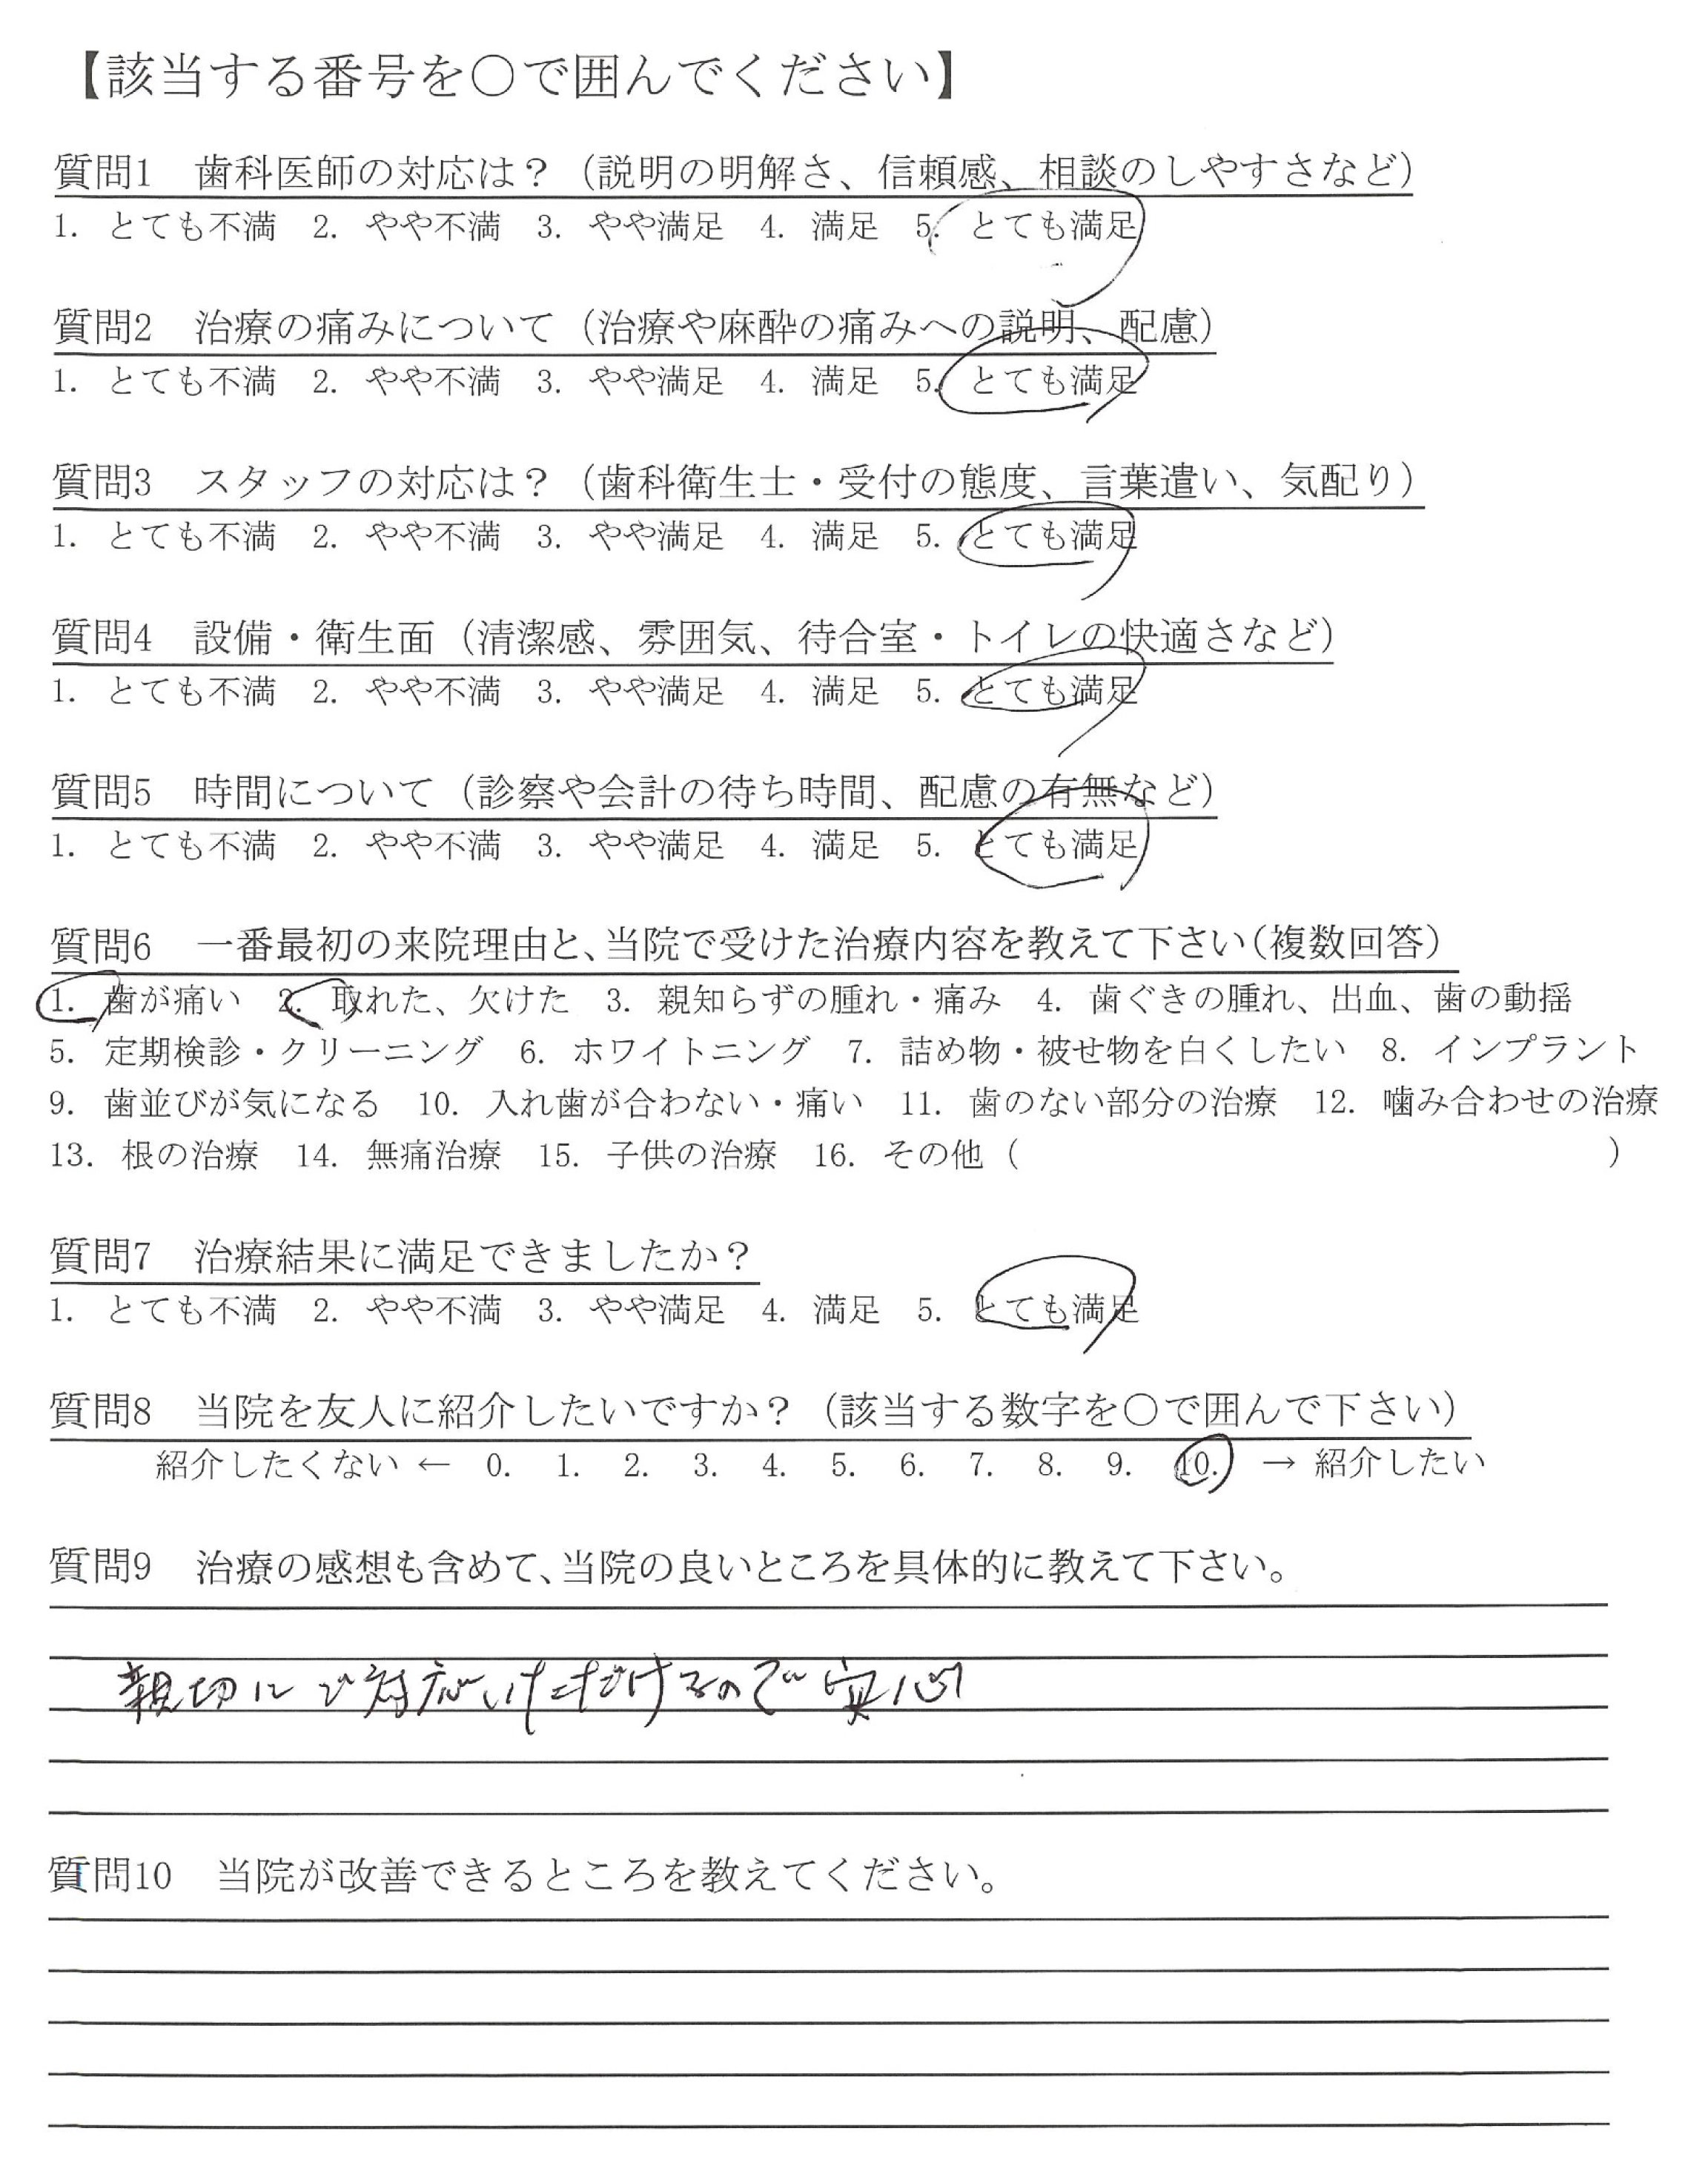 【該当する番号を〇で囲んでください】
質問1 歯科医師の対応は？（説明の明解さ、信頼感、相談のしやすさなど）
1. とても不満 2. やや不満 3. やや満足 4. 満足 5. とても満足
質問2 治療の痛みについて（治療や麻酔の痛みへの説明、配慮）
1. とても不満 2. やや不満 3. やや満足 4. 満足 5. とても満足
質問3 スタッフの対応は？（歯科衛生士・受付の態度、言葉遣い、気配り）
1. とても不満 2. やや不満 3. やや満足 4. 満足 5. とても満足
質問4 設備・衛生面（清潔感、雰囲気、待合室・トイレの快適さなど）
1. とても不満 2. やや不満 3. やや満足 4. 満足 5. とても満足
質問5 時間について（診察や会計の待ち時間、配慮の有無など）
1. とても不満 2. やや不満 3. やや満足 4. 満足 5. とても満足
質問6 一番最初の来院理由と、当院で受けた治療内容を教えて下さい（複数回答）
1. 歯が痛い 2. 取れた、欠けた 3. 親知らずの腫れ・痛み 4. 歯ぐきの腫れ、出血、歯の動揺
5. 定期検診・クリーニング 6. ホワイトニング 7. 詰め物・被せ物を白くしたい 8. インプラント
9. 歯並びが気になる 10. 入れ歯が合わない・痛い 11. 歯のない部分の治療 12. 噛み合わせの治療
13. 根の治療 14. 無痛治療 15. 子供の治療 16. その他（ ）
質問7 治療結果に満足できましたか？
1. とても不満 2. やや不満 3. やや満足 4. 満足 5. とても満足
質問8 当院を友人に紹介したいですか？（該当する数字を〇で囲んで下さい）
紹介したくない ← 0. 1. 2. 3. 4. 5. 6. 7. 8. 9. 10. → 紹介したい
質問9 治療の感想も含めて、当院の良いところを具体的に教えて下さい。
親切にご対応いただけるので安心
質問10 当院が改善できるところを教えてください。